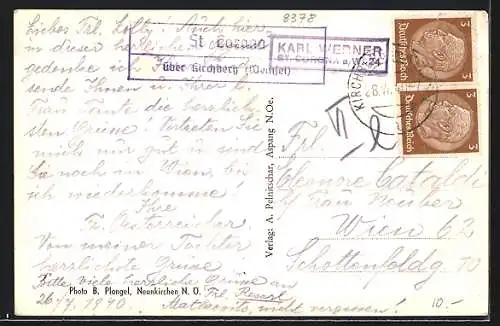 8378
St. Corona
über Kirchberg (Wechsel)
KARL WERNER
ST. CORONA a. W. 24
Deutsches Reich
3
Deutsches Reich
3
KIRCH
28.
Liebes Frl. Lolly! Auch hier
in dieser herrlichen
gedenke ich
sende Ihnen u. Ihrer l.
Frau Tante die herzlich-
sten Grüsse! Vertreten Sie
mich nur gut u. sind
Sie noch in Wien, bis
ich wiederkomme!
Ihre
Fr. Oesterreicher
Von meiner Tochter
herzlichste Grüsse
Bitte viele herzliche Grüsse an
Frl. Reserl
26./7. 1940. nicht vergessen!
Photo B. Plangel, Neunkirchen N. O.
Verlag: A. Pelnitschar, Aspang N.Oe.
VI
Frl
Eleonore Cataldi
b/ Frau Neuber
Wien 62
Schottenfeldg 70
10.-